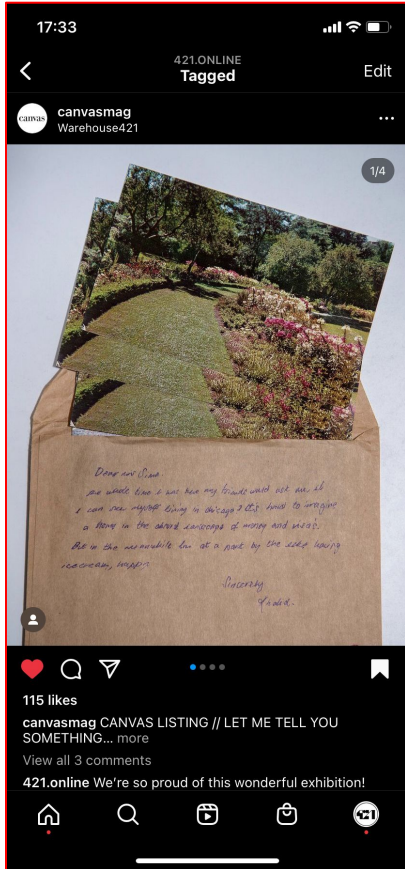 17:33
421.ONLINE
Tagged
Edit
canvas
canvasmag
Warehouse421
1/4
Dear
the whole time I was here my friends would ask me if
I can see myself living in chicago? It's hard to imagine
a home in the absurd landscape of money and visas.
But in the meanwhile I'm at a park by the lake having
icecream, happy.
Sincerely
115 likes
canvasmag CANVAS LISTING // LET ME TELL YOU
SOMETHING... more
View all 3 comments
421.online We're so proud of this wonderful exhibition!
421